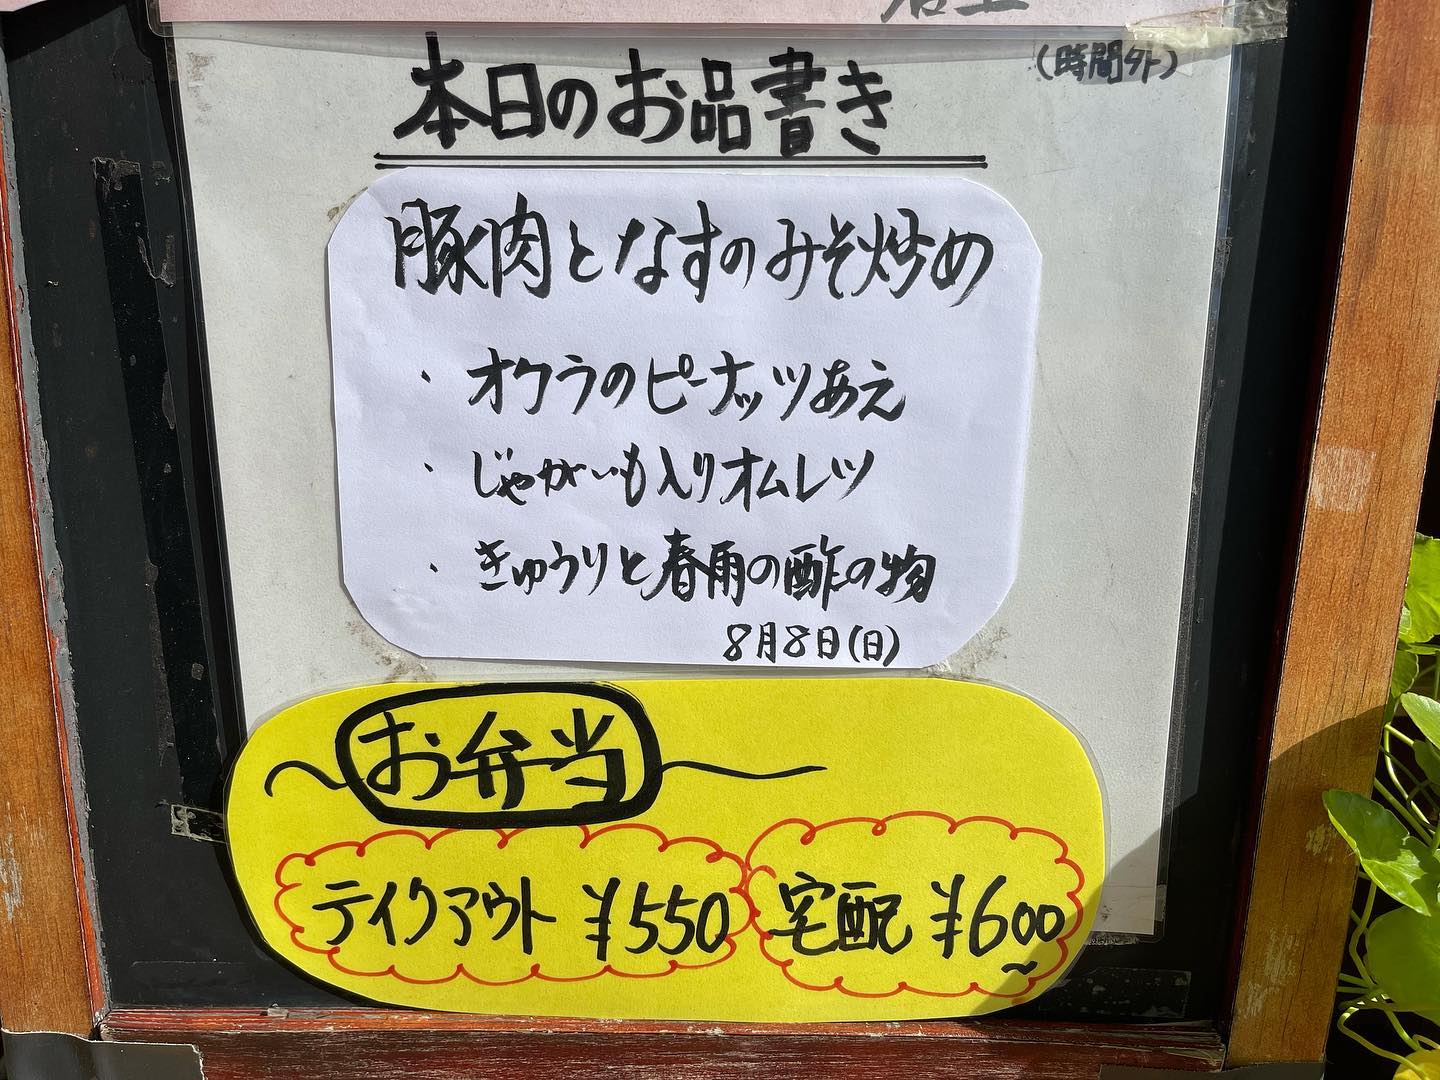 (時間外)
本日のお品書き
豚肉となすのみそ炒め
・オクラのピーナッツあえ
・じゃがいも入りオムレツ
・きゅうりと春雨の酢の物
8月8日(日)
お弁当
テイクアウト ¥550
宅配 ¥600〜